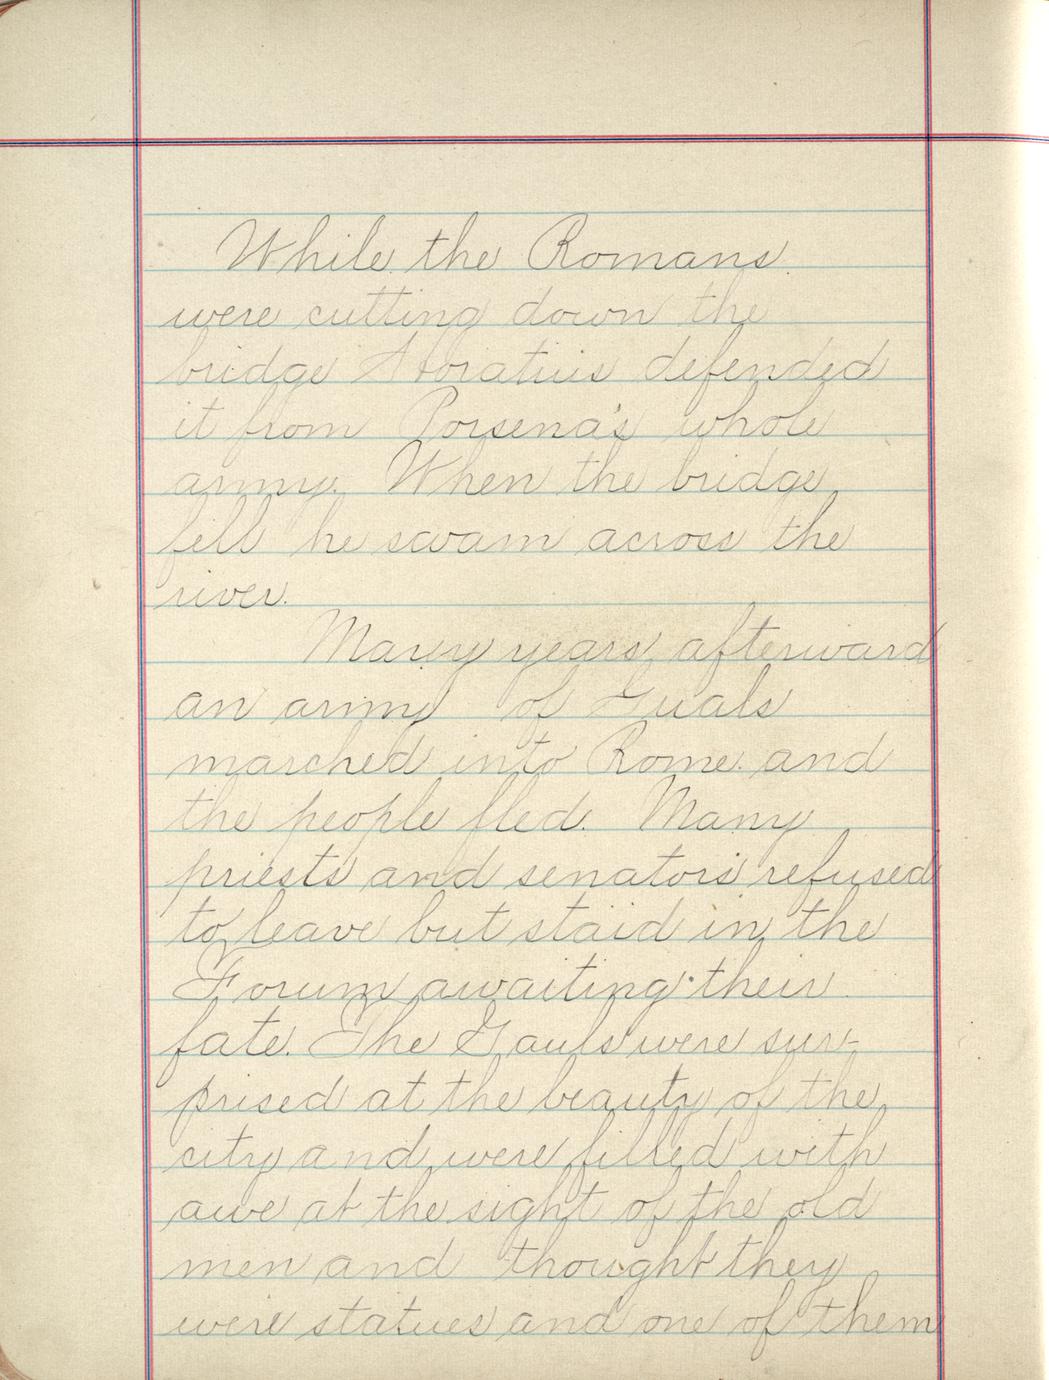 While the Romans
were cutting down the
bridge Horatius defended
it from Porsena's whole
army. When the bridge
fell he swam across the
river.
Many years afterward
an army of Guals
marched into Rome and
the people fled. Many
priests and senators refused
to leave but staid in the
Forum awaiting their
fate. The Gauls were sur-
prised at the beauty of the
city and were filled with
awe at the sight of the old
men and thought they
were statues and one of them